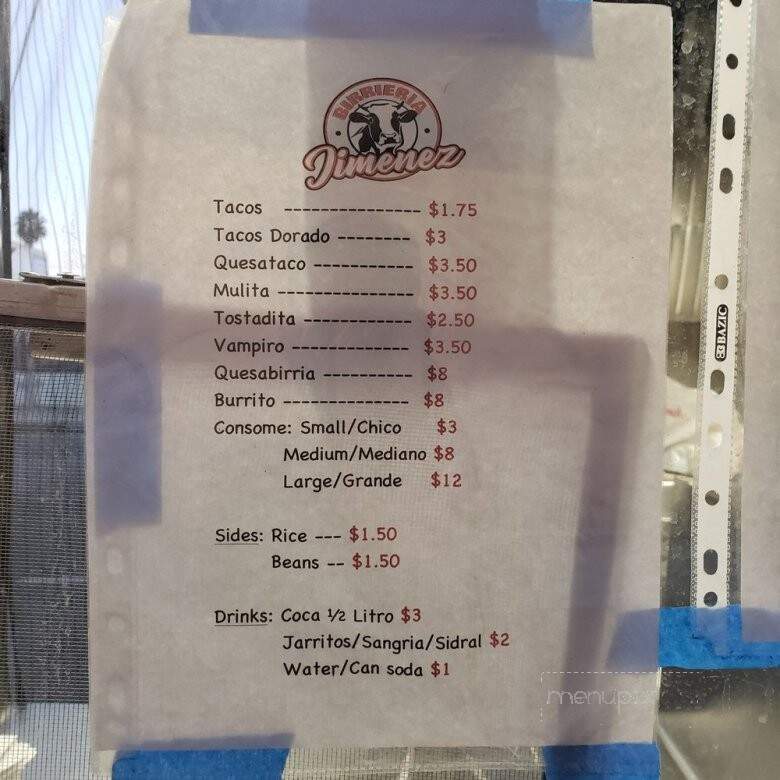 BIRRIERIA
Jimenez
Tacos --------------- $1.75
Tacos Dorado -------- $3
Quesataco ----------- $3.50
Mulita --------------- $3.50
Tostadita ------------ $2.50
Vampiro ------------- $3.50
Quesabirria ---------- $8
Burrito -------------- $8
Consome: Small/Chico $3
Medium/Mediano $8
Large/Grande $12
Sides: Rice --- $1.50
Beans -- $1.50
Drinks: Coca ½ Litro $3
Jarritos/Sangria/Sidral $2
Water/Can soda $1
BAZIC